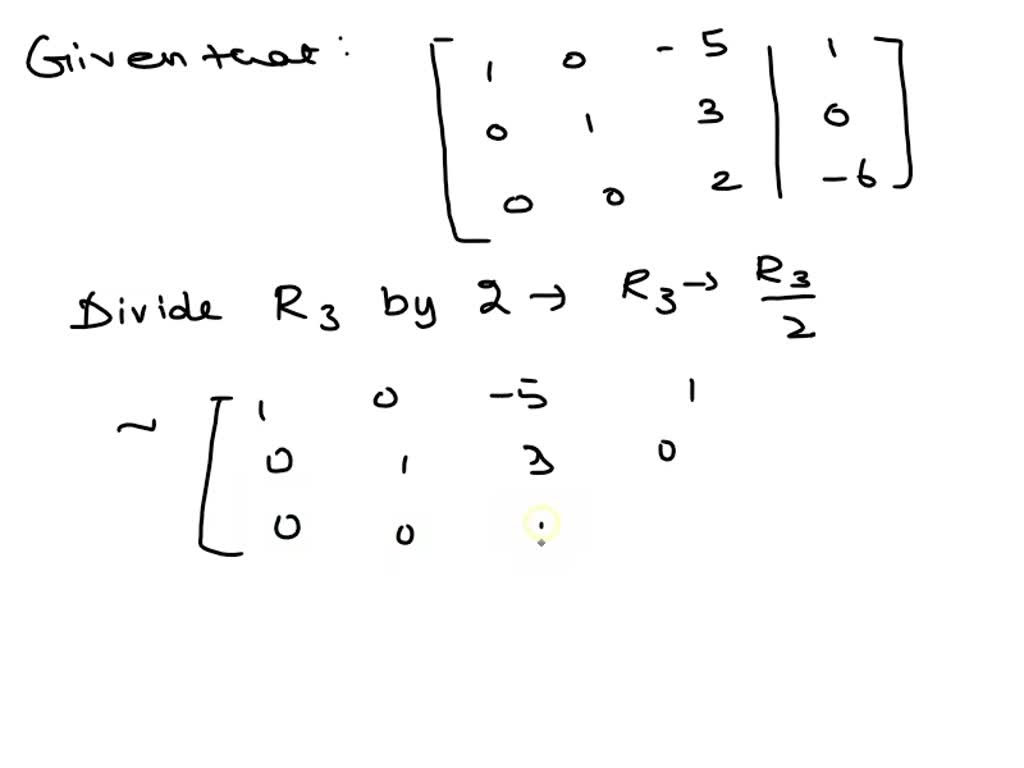 Given that :
1 0 -5 | 1
0 1 3 | 0
0 0 2 | -6
Divide R3 by 2 → R3 → R3/2
~ 1 0 -5 1
0 1 3 0
0 0